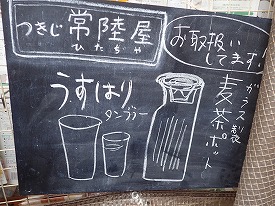 つきじ 常陸屋
ひたちや
お取扱い
してます!
うすはり
タンブラー
ガラス製
麦茶ポット